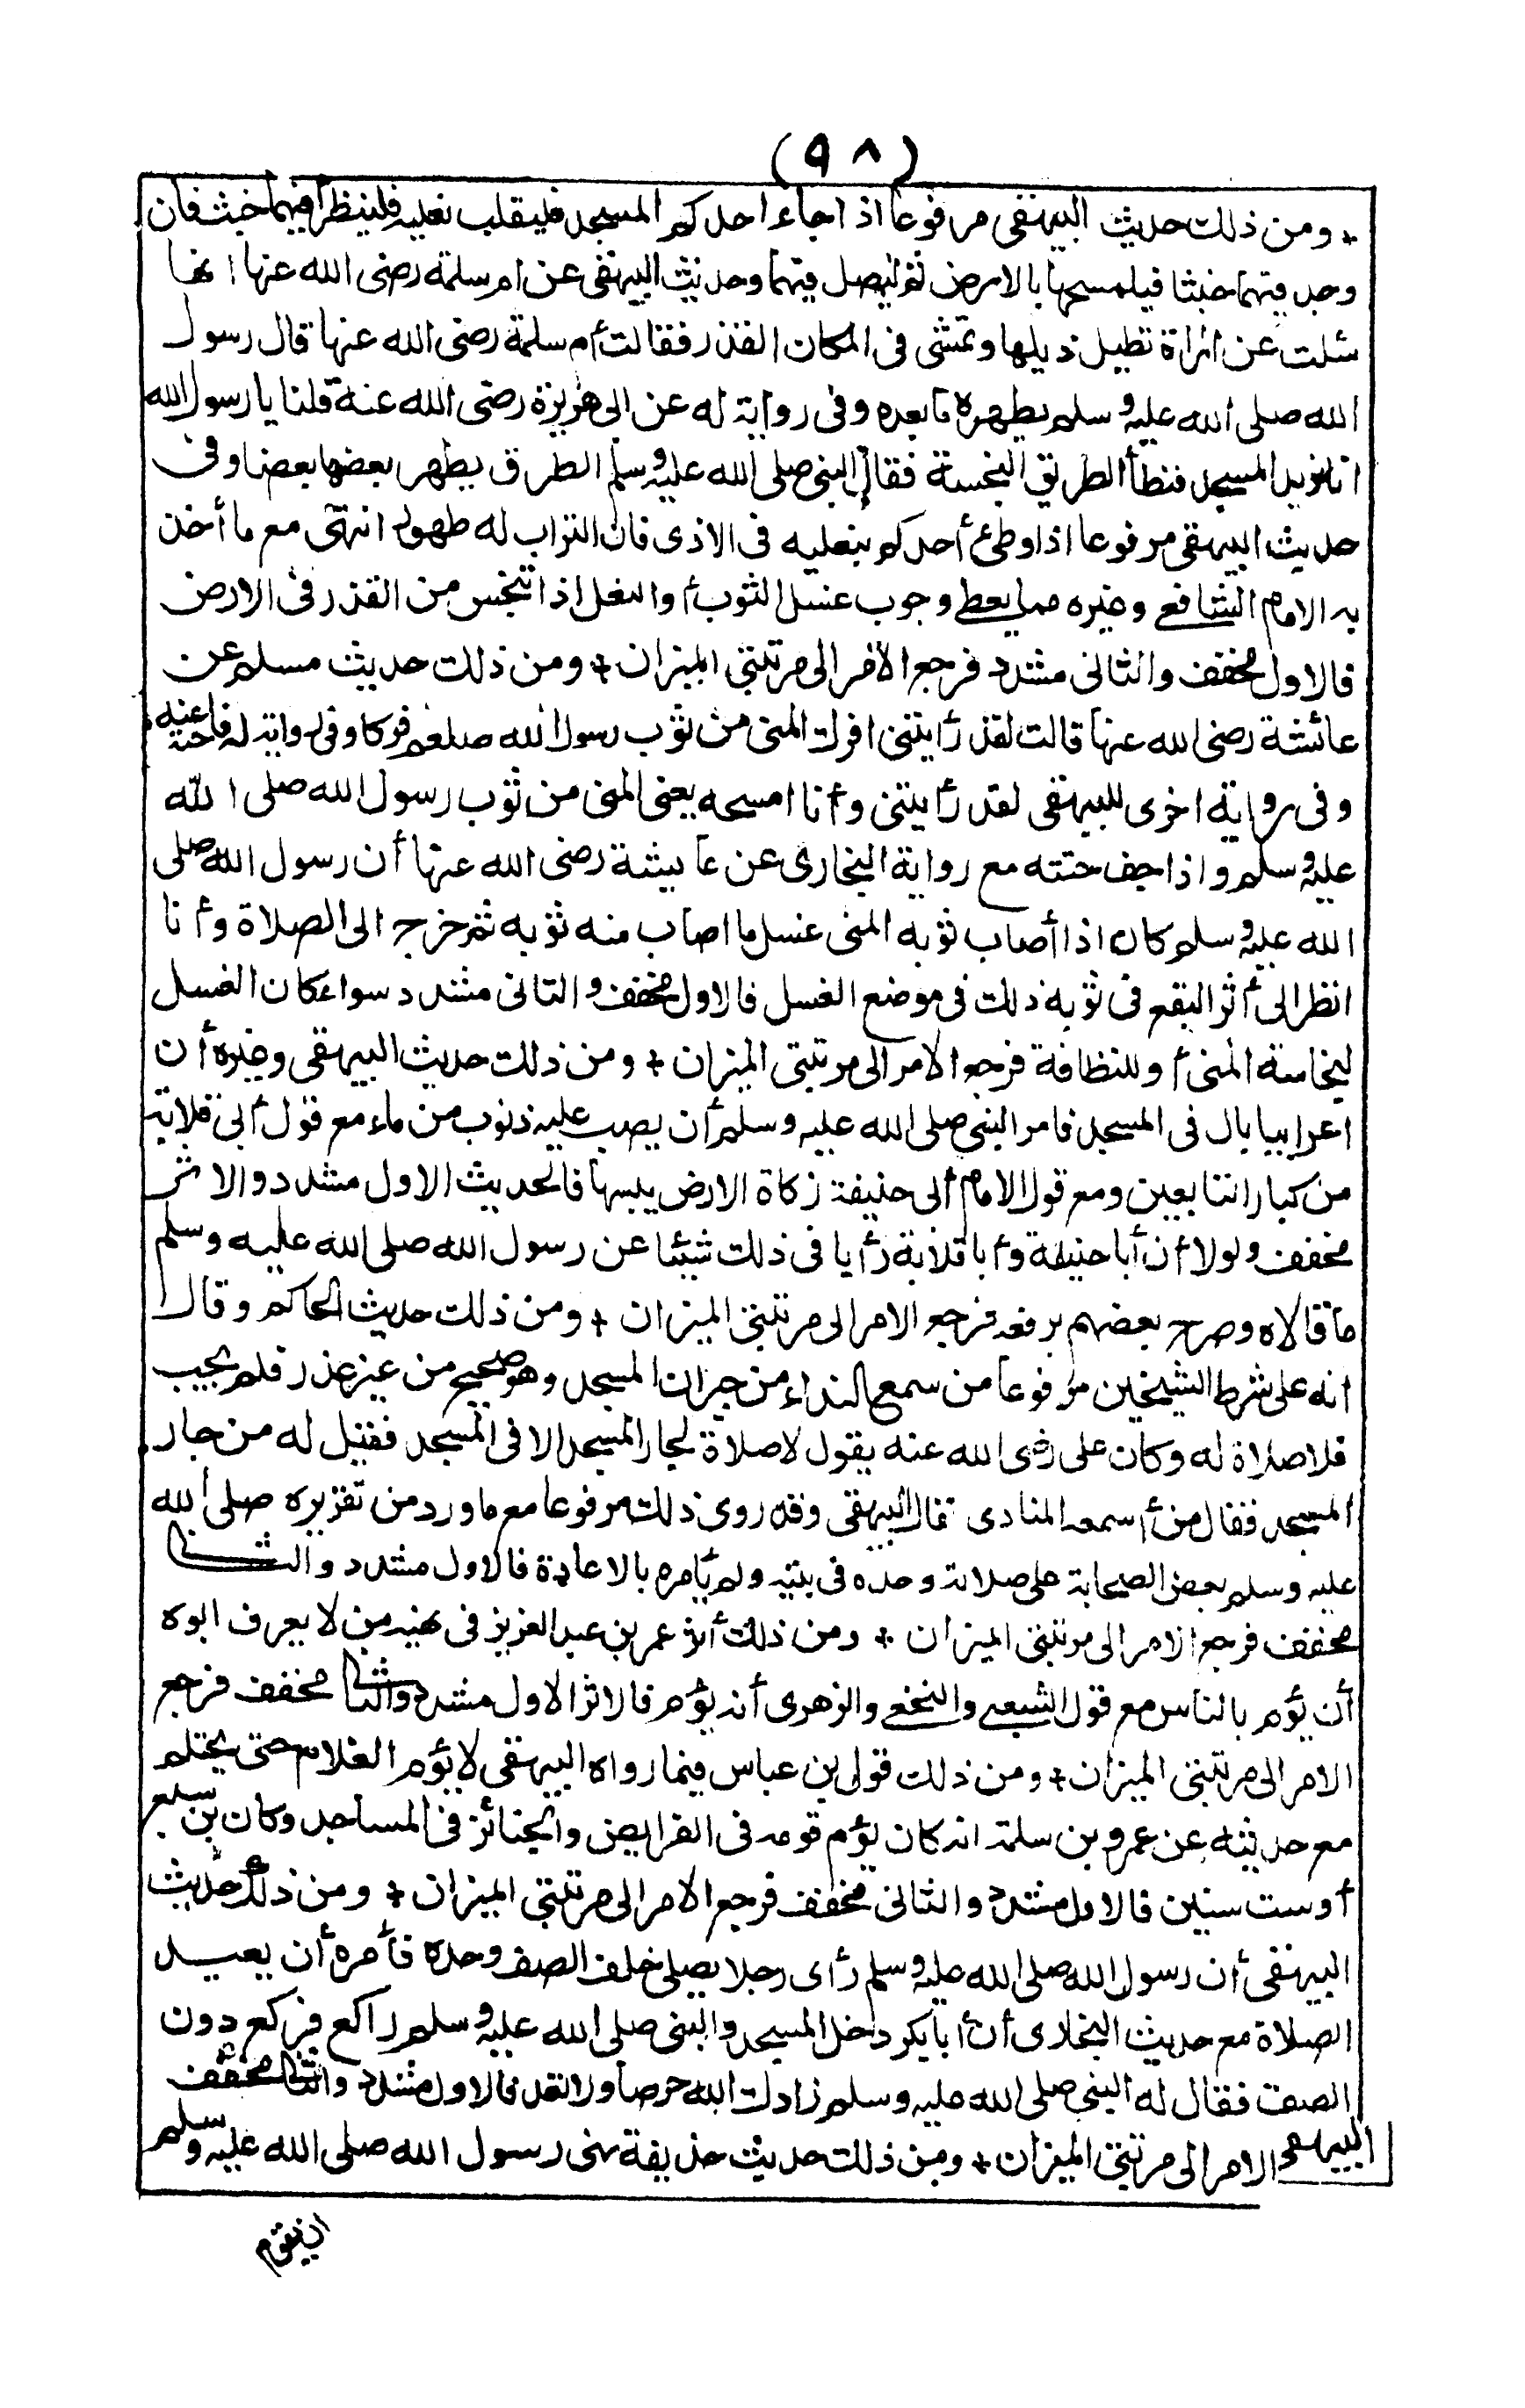 (٩٨)
+ ومن ذلك حديث البيهقي مرفوعا اذا جاء احدكم المسجد فليقلب نعليه فلينظر أفيهما خبث فان
وجد فيهما خبثا فيلمسحهما بالارض ثم ليصل فيهما وحديث البيهقى عن ام سلمة رضى الله عنها انها
سئلت عن امراة تطيل ذيلها وتمشى فى المكان القذر فقالت أم سلمة رضى الله عنها قال رسول
الله صلى الله عليه و سلم يطهره ما بعده وفى رواية له عن ابى هريرة رضى الله عنه قلنا يا رسول الله
انا نريد المسجد فنطأ الطريق النجسة فقال النبى صلى الله عليه وسلم الطرق يطهر بعضها بعضا وفى
حديث البيهقى مرفوعا اذا وطئ أحدكم بنعليه فى الاذى فان التراب له طهور انتهى مع ما أخذ
به الامام الشافعى وغيره مما يعط وجوب غسل الثوب أ والنعل اذا تنجس من القذر فى الارض
فالاول مخفف والثانى مشدد فرجع الامر الى مرتبتى الميزان + ومن ذلك حديث مسلم عن
عائشة رضى الله عنها قالت لقد رأيتنى افرك المنى من ثوب رسول الله صلعم فركا وفى رواية له فاحته عنه
وفى رواية اخرى للبيهقى لقد رأيتنى وأنا امسحه يعنى المنى من ثوب رسول الله صلى الله
عليه وسلم واذا جف حتته مع رواية البخارى عن عايشة رضى الله عنها أن رسول الله صلى
الله عليه وسلم كان اذا أصاب ثوبه المنى غسل ما اصاب منه ثوبه ثم خرج الى الصلاة وأنا
انظر الى أثر البقع فى ثوبه ذلك فى موضع الغسل فالاول مخفف و الثانى مشدد سواء كان الغسل
لنجاسة المنى أ وللنظافة فرجع الامر الى مرتبتى الميزان + ومن ذلك حديث البيهقى وغيره أن
اعرابيا بال فى المسجد فامر النبى صلى الله عليه وسلم أن يصب عليه ذنوب من ماء مع قول أبى قلابة
من كبار التابعين ومع قول الامام أبى حنيفة زكاة الارض يبسها فالحديث الاول مشدد والاثر
مخفف ولولا أن أبا حنيفة وأبا قلابة رأيا فى ذلك شيئا عن رسول الله صلى الله عليه وسلم
ما قالاه وصرح بعضهم برفعه فرجع الامر الى مرتبتى الميزان + ومن ذلك حديث الحاكم وقال
انه على شرط الشيخين مرفوعا من سمع النداء من جيران المسجد وهو صحيح من غير عذر فلم يجيب
فلا صلاة له وكان على رضى الله عنه يقول لا صلاة لجار المسجد الا فى المسجد فقيل له من جار
المسجد فقال من أسمعه المنادى قال البيهقى وقد روى ذلك مرفوعا مع ما ورد من تقريره صلى الله
عليه وسلم بعض الصحابة على صلاته وحده فى بيته ولم يأمره بالاعادة فالاول مشدد والثانى
مخفف فرجع الامر الى مرتبتى الميزان + ومن ذلك أثر عمر بن عبد العزيز فى نهيه من لا يعرف ابوه
أن يؤم بالناس مع قول الشعبى والنخعى والزهرى أنه يؤم فالاثر الاول مشدد والثانى مخفف فرجع
الامر الى مرتبتى الميزان + ومن ذلك قول بن عباس فيما رواه البيهقى لا يؤم الغلام حتى يحتلم
مع حديثه عن عمرو بن سلمة انه كان يؤم قومه فى الفرايض والجنائز فى المساجد وكان بن سبع
أوست سنين فالاول مشدد والثانى مخفف فرجع الامر الى مرتبتى الميزان + ومن ذلك حديث
البيهقى أن رسول الله صلى الله عليه وسلم رأى رجلا يصلى خلف الصف وحده فأمره أن يعيد
الصلاة مع حديث البخارى أن أبا بكر دخل المسجد والنبى صلى الله عليه وسلم راكع فركع دون
الصف فقال له النبى صلى الله عليه وسلم زادك الله حرصا ولا تعد فالاول مشدد والثانى مخفف
البيهقى الامر الى مرتبتى الميزان + ومن ذلك حديث حذيفة نهى رسول الله صلى الله عليه وسلم
ان يقوم